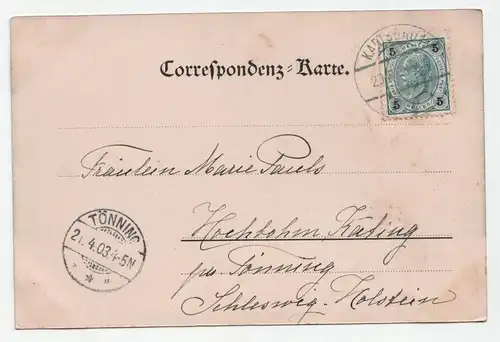 Correspondenz-Karte.
5 5
5 5
Fräulein Marie Pauls
Hochbohm Kating
per Tönning
Schleswig-Holstein
TÖNNING
21.4.03.4-5N